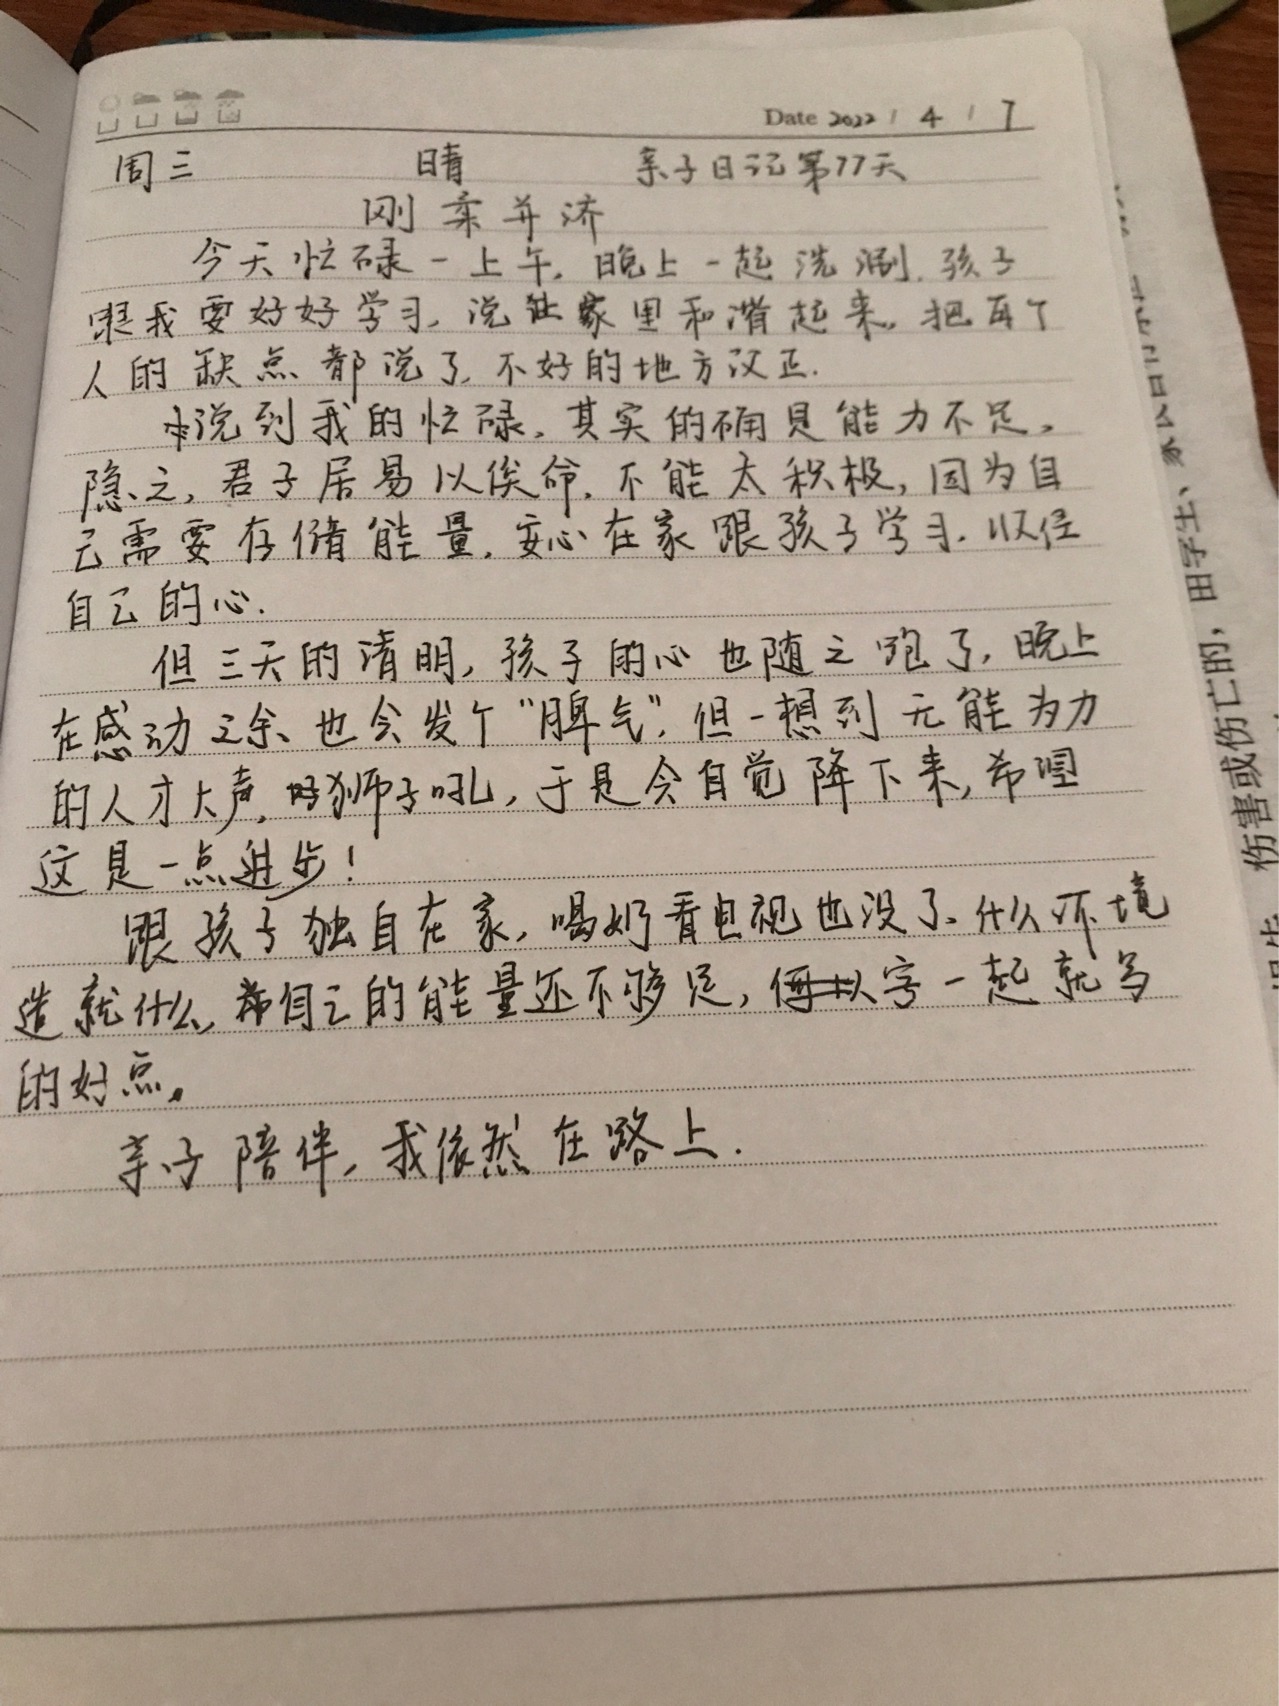 Date 2022 / 4 / 7
周三 晴 亲子日记第77天
刚柔并济
今天忙碌一上午,晚上一起洗涮,孩子
跟我要好好学习,说让家里和谐起来,把每个
人的缺点都说了,不好的地方改正.
说到我的忙碌,其实的确是能力不足,
隐之,君子居易以俟命,不能太积极,因为自
己需要存储能量,安心在家跟孩子学习,以径
自己的心.
但三天的清明,孩子的心也随之跑了,晚上
在感动之余、也会发个“脾气”,但一想到无能为力
的人才大声,狮子吼,于是会自觉降下来,希望
这是一点进步!
跟孩子独自在家,喝奶看电视也没了、什么环境
造就什么,自己的能量还不够足,字一起就多
的好点。
亲子陪伴,我依然在路上.
伤害或伤亡的,由学生、